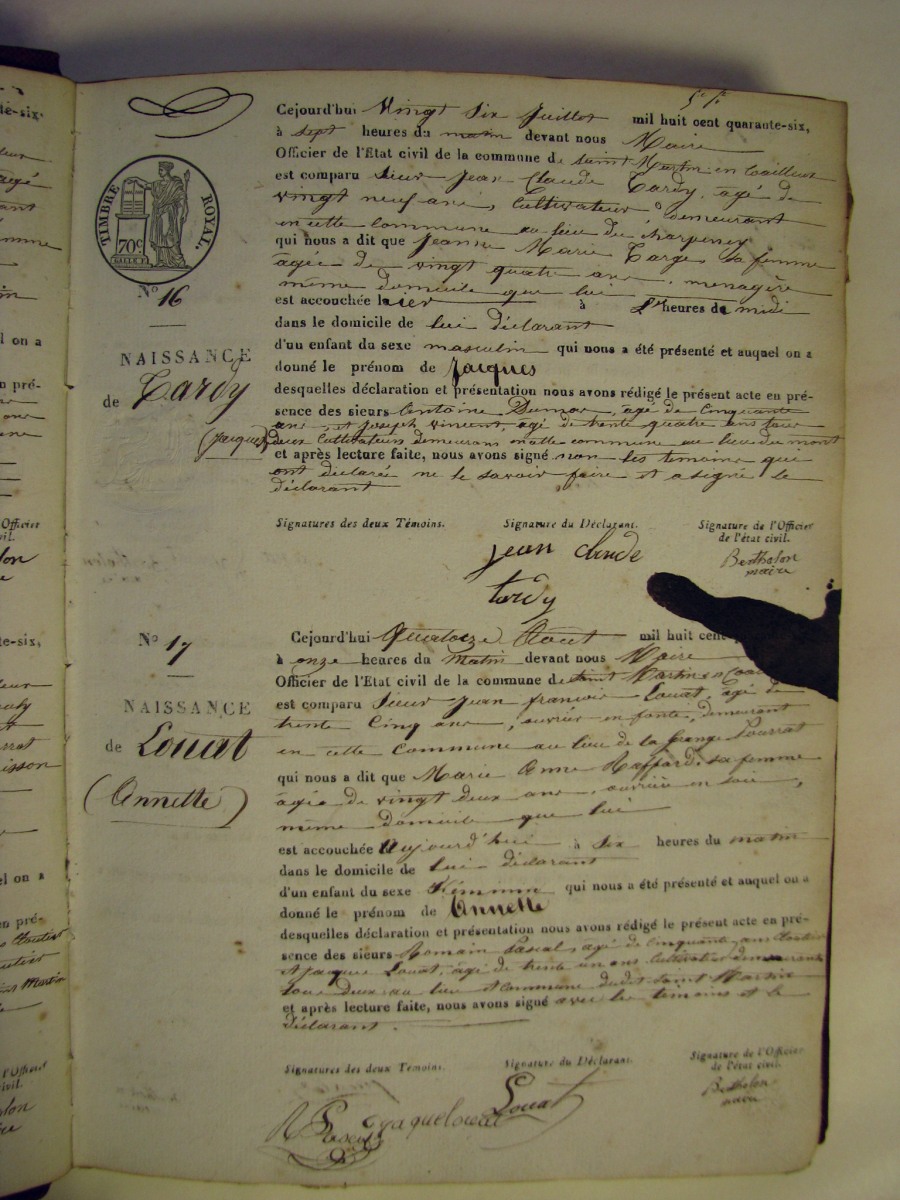 5e fe
Cejourd'hui Vingt Six Juillet mil huit cent quarante-six,
à sept heures du matin devant nous Maire
Officier de l'Etat civil de la commune de Saint Martin en Coailleux
est comparu Sieur Jean Claude Tardy, agé de
vingt neuf ans, Cultivateur demeurant
en cette commune au lieu de Charpenay
TIMBRE ROYAL.
70c
qui nous a dit que Jeanne Marie Targe, sa femme
âgée de vingt quatre ans, menagère
même domicile que lui
No 16
est accouchée hier à heures de midi
dans le domicile de lui déclarant
d'un enfant du sexe masculin qui nous a été présenté et auquel on a
NAISSANCE
donné le prénom de Jacques
de Tardy
desquelles déclaration et présentation nous avons rédigé le présent acte en pré-
sence des sieurs Antoine Dumas, agé de Cinquante
ans, et Joseph Vincent, agé de trente quatre ans tous
(Jacques)
deux Cultivateurs demeurans en cette commune au lieu du mont
et après lecture faite, nous avons signé non les temoins qui
ont déclarée ne le savoir faire et a signé le
déclarant
Signatures des deux Témoins. Signature du Déclarant. Signature de l'Officier
de l'état civil.
jean claude
tardy
Bertholon
maire
No 17
Cejourd'hui Quatorze Aout mil huit cent
à onze heures du Matin devant nous Maire
Officier de l'Etat civil de la commune de Saint Martin en
est comparu Sieur Jean françois Louat, agé de
NAISSANCE
trente Cinq ans, ouvrier en fonte, demeurant
de Louat
en cette Commune au lieu de la Grange Pourrat
qui nous a dit que Marie Anne Raffard, sa femme
(Annette)
âgée de vingt deux ans, ouvrière en soie,
même domicile que lui
est accouchée Aujourd'hui à six heures du matin
dans le domicile de lui déclarant
d'un enfant du sexe Féminin qui nous a été présenté et auquel on a
donné le prénom de Annette
desquelles déclaration et présentation nous avons rédigé le présent acte en pré-
sence des sieurs Romain Pascal, agé de Cinquante ans
et Jacques Louat, agé de trente un ans Cultivateur demeurants
tous deux au lieu et commune dudit Saint Martin
et après lecture faite, nous avons signé avec les temoins et le
déclarant.
Signatures des deux Témoins. Signature du Déclarant. Signature de l'Officier
de l'état civil.
Louat
Bertholon
maire
R Pascal jaque louat